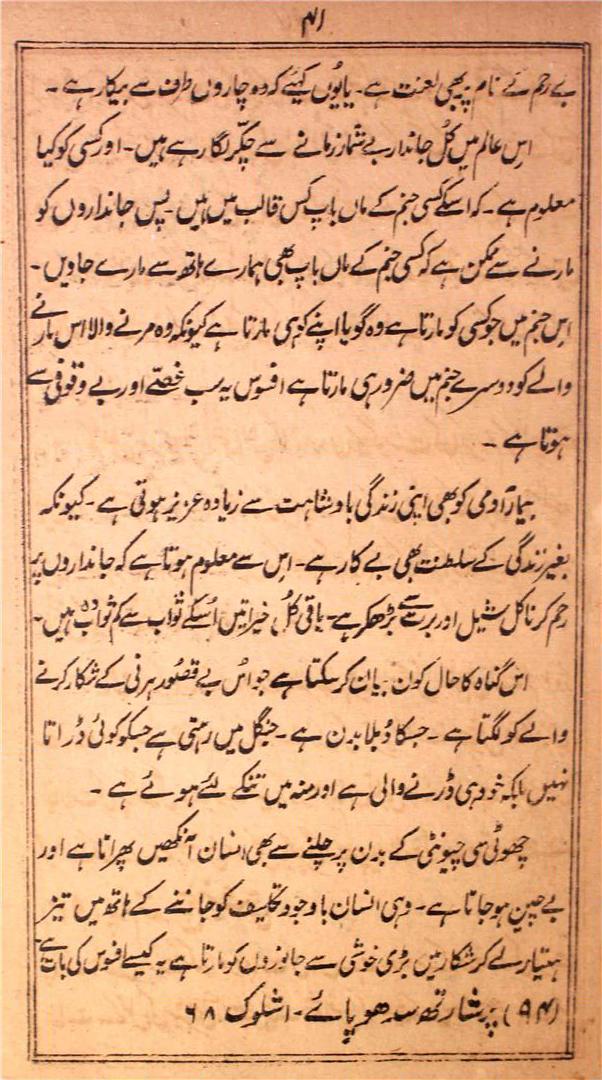 ۴۱
بے رحم کے نام پر بھی لعنت ہے۔ یا یُوں کہئیے کہ وہ چاروں طرف سے بیکار ہے۔
اِس عالم میں کُل جاندار بے شمار زمانے سے چکّر لگا رہے ہیں۔ اور کسی کو کیا
معلوم ہے۔ کہ اسکے کسی جنم کے ماں باپ کس قالب میں ہیں۔ پس جانداروں کو
مارنے سے ممکن ہے کہ کسی جنم کے ماں باپ بھی ہمارے ہاتھ سے مارے جاویں۔
اِس جنم میں جو کسی کو مارتا ہے وہ گویا اپنے کو ہی مارتا ہے کیونکہ وہ مرنے والا اس مارنے
والے کو دوسرے جنم میں ضرور ہی مارتا ہے افسوس یہ سب غصّے اور بے وقوفی سے
ہوتا ہے۔
بیمار آدمی کو بھی اپنی زندگی بادشاہت سے زیادہ عزیز ہوتی ہے۔ کیونکہ
بغیر زندگی کے سلطنت بھی بے کار ہے۔ اِس سے معلوم ہوتا ہے کہ جانداروں پر
رحم کرنا کل شیل اور برت سے بڑھکر ہے۔ باقی کُل خیراتیں اُسکے ثواب سے کم ثواب دہ ہیں۔
اس گناہ کا حال کون بیان کر سکتا ہے جو اُس بے قصُور ہرنی کے شکار کرنے
والے کو لگتا ہے۔ جسکا دُبلا بدن ہے۔ جنگل میں رہتی ہے جسکو کوئی ڈراتا
نہیں بلکہ خود ہی ڈرنے والی ہے اور منہ میں تنکے لئے ہوئے ہے۔
چھوٹی سی چیونٹی کے بدن پر چلنے سے بھی انسان آنکھیں پھراتا ہے اور
بے چین ہو جاتا ہے۔ وہی انسان باوجود تکلیف کو جاننے کے ہاتھ میں تیز
ہتیار لے کر شکار میں بڑی خوشی سے جانوروں کو مارتا ہے یہ کیسے افسوس کی بات ہے
(۹۴) پرشارتھ سدھو پائے۔ اشلوک ۶۸